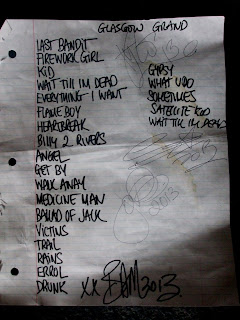 GLASGOW GRAND
LAST BANDIT
FIREWORK GIRL
KID
WAIT TILL IM DEAD
EVERYTHING I WANT
FLAME BOY
HEARTBREAK
BILLY 2 RIVERS
ANGEL
GET BY
WALK AWAY
MEDICINE MAN
BALLAD OF JACK
VICTIMS
TRAIL
RAINS
ERROL
DRUNK
GYPSY
WHAT U DO
SOMETIMES
SATELLITE KID
WAIT TILL IM DEAD
XX BAM 2013.